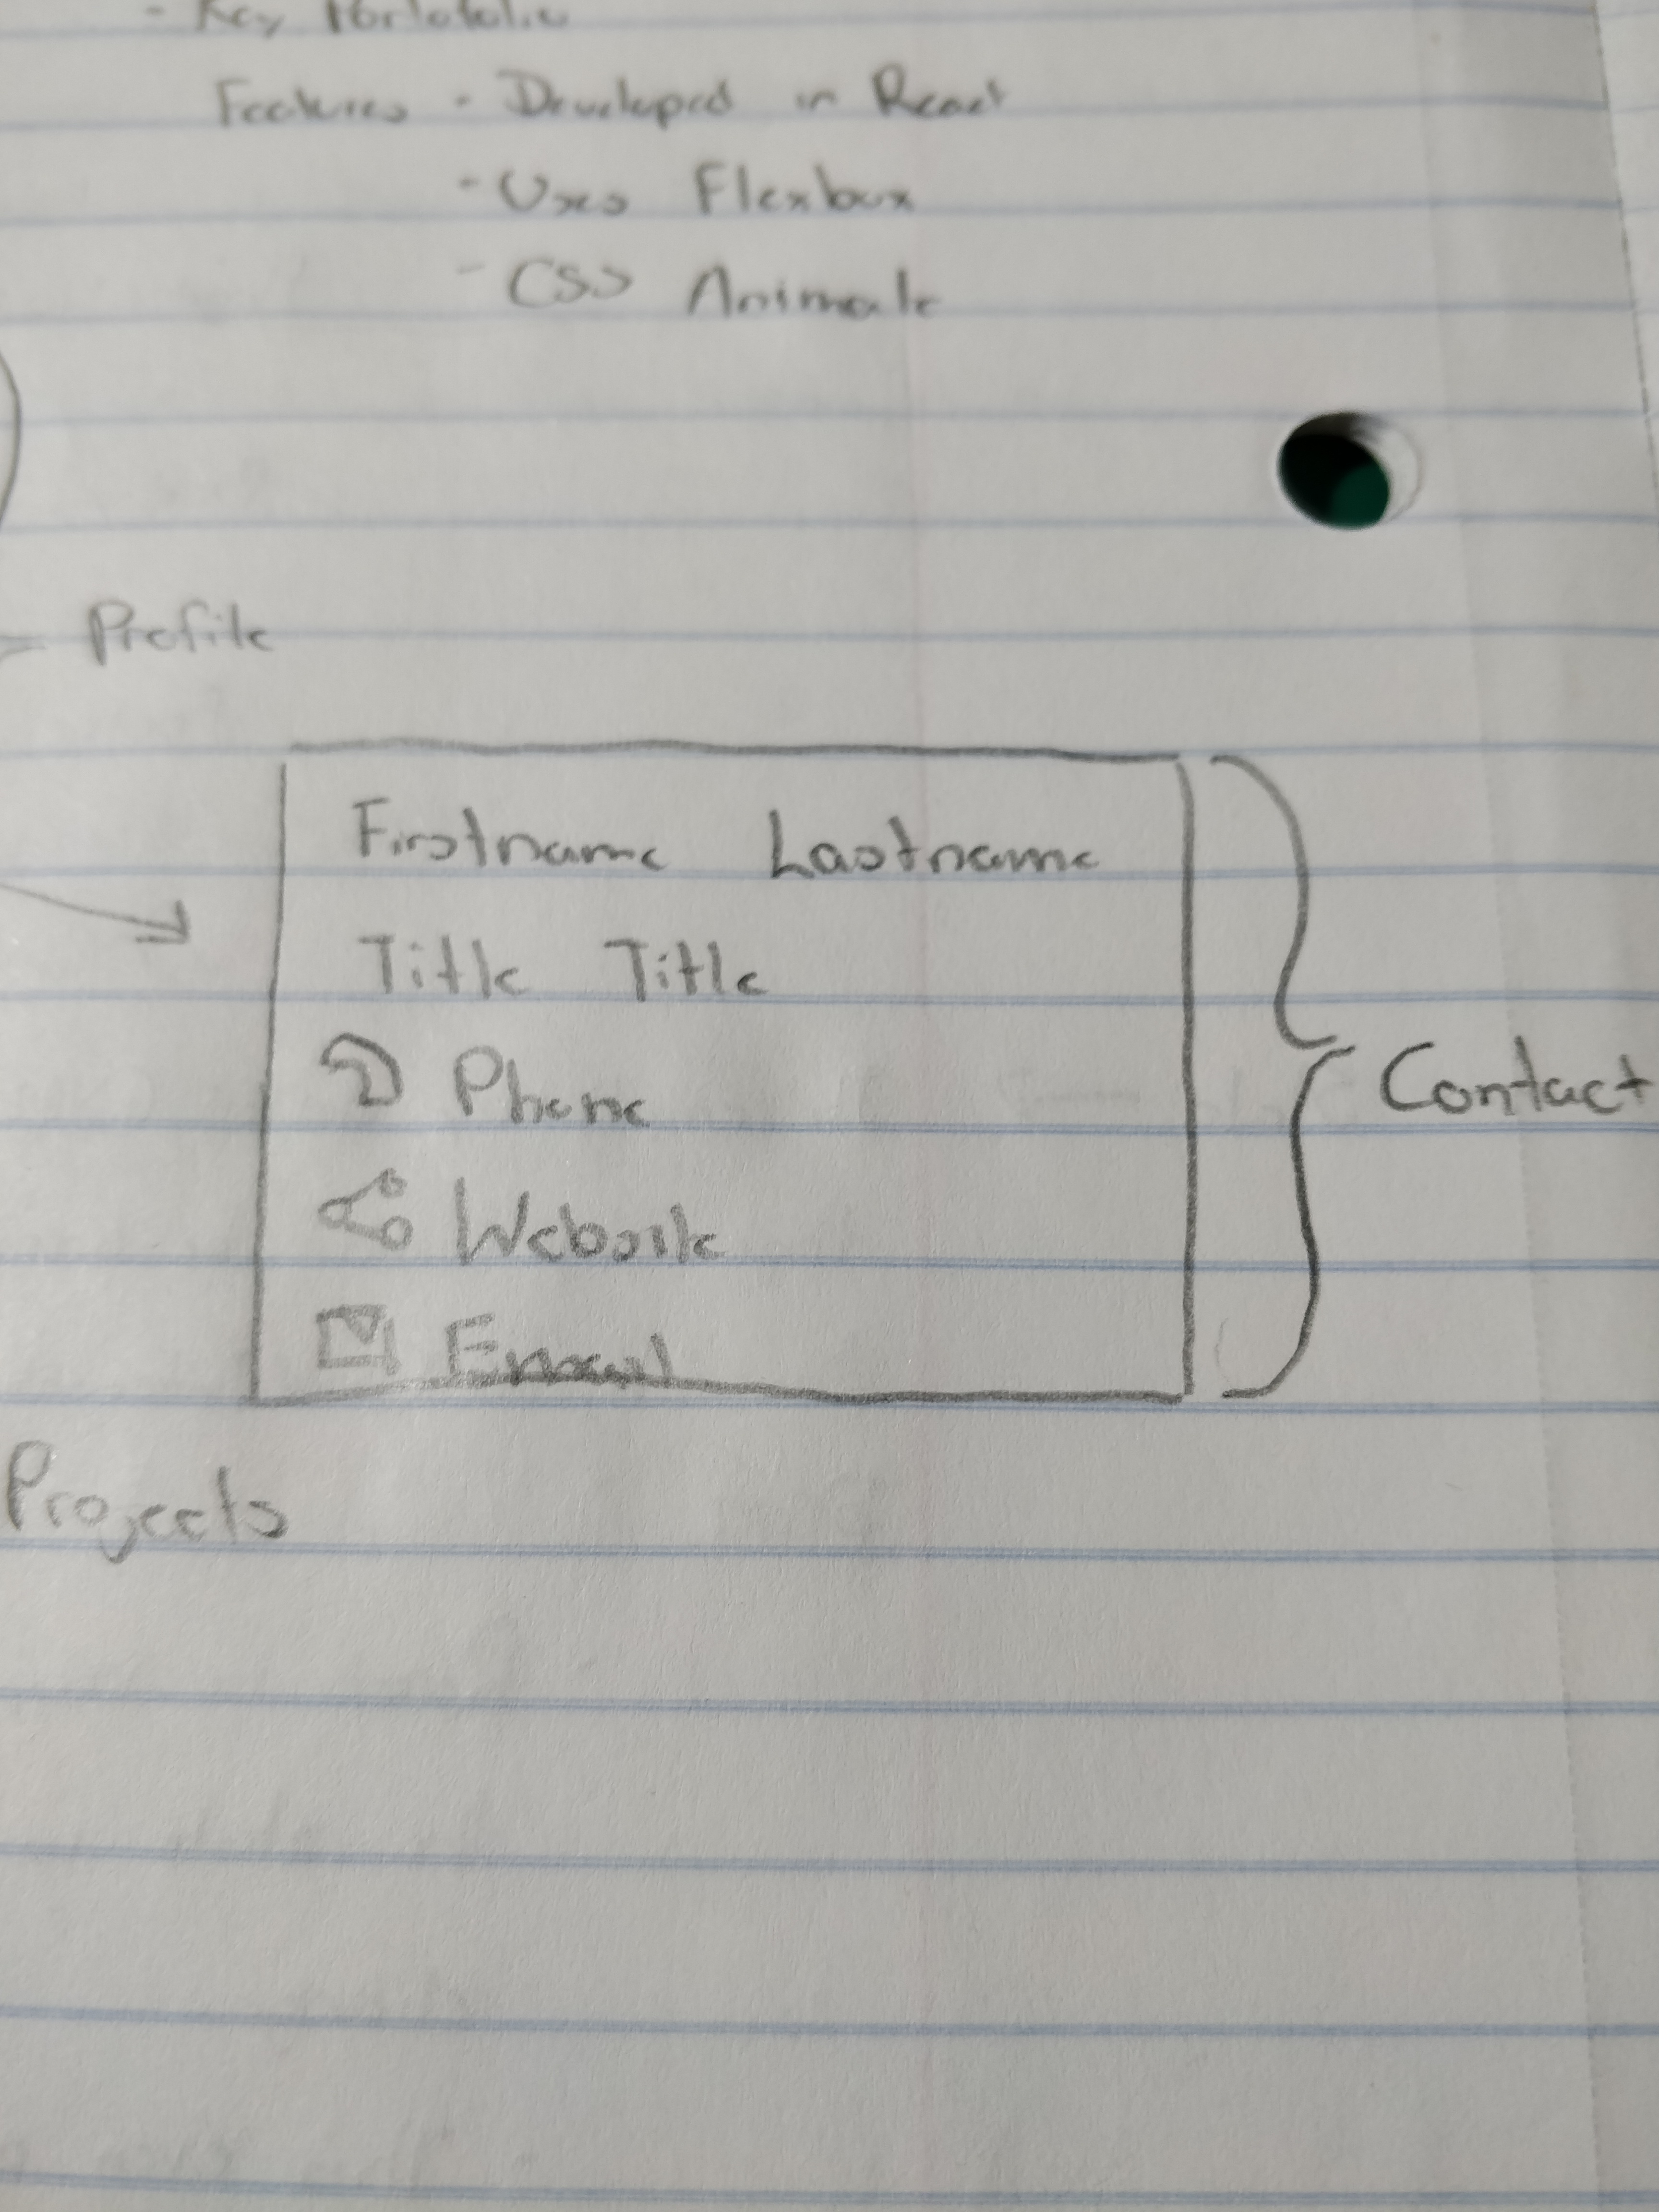 - Key Portofolio
Features - Developed in React
- Uses Flexbox
- CSS Animate
Profile
Firstname Lastname
Title Title
Phone
Contact
Website
Email
Projects